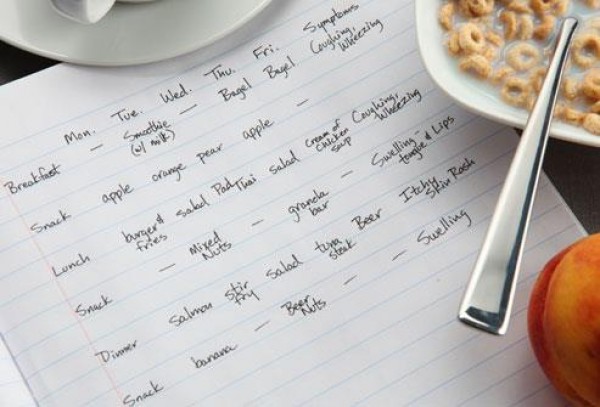 Mon. Tue. Wed. Thu. Fri. Symptoms
Breakfast — Smoothie — Bagel Bagel Coughing,
(w/ milk) Wheezing
Snack apple orange pear apple —
Lunch burger & salad Pad Thai salad cream of Coughing,
fries chicken Wheezing
soup
Snack — Mixed — granola — Swelling -
Nuts bar tongue & Lips
Dinner salmon stir salad tuna Beer Itchy
fry steak Skin Rash
Snack banana — Beer — — Swelling
Nuts